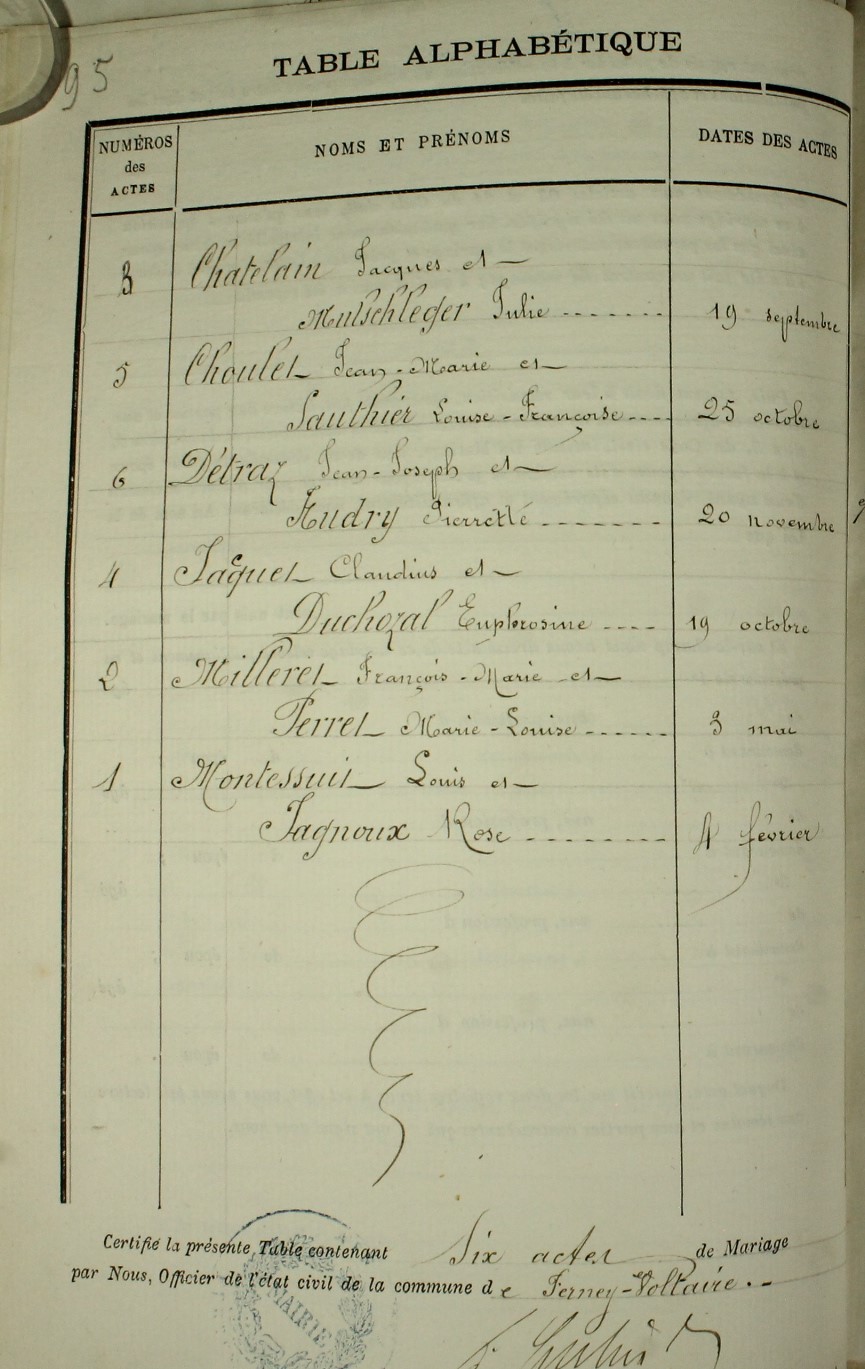 95
TABLE ALPHABÉTIQUE
NUMÉROS des ACTES NOMS ET PRÉNOMS DATES DES ACTES
3 Chatelain Jacques et
Mutschleger Julie 19 septembre
5 Choulet Jean-Marie et
Sauthier Louise-Françoise 25 octobre
6 Détraz Jean-Joseph et
Audry Pierrette 20 novembre
4 Jaquet Claudius et
Duchozal Euphrosine 19 octobre
2 Milleret François-Marie et
Perret Marie-Louise 3 mai
1 Montessuit Louis et
Jagnoux Rose 4 février
Certifié la présente Table contenant Six actes de Mariage
par Nous, Officier de l'état civil de la commune de Ferney-Voltaire.
MAIRIE